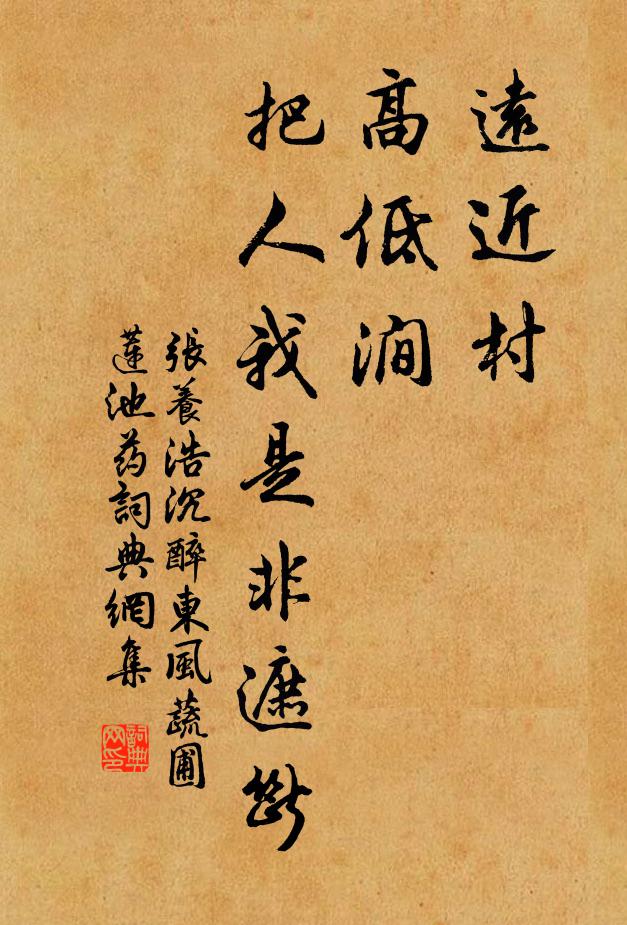 遠近村
高低澗
把人我是非遮斷
張養浩沉醉東風蔬圃
蓮池药詞典網集
詞典网印